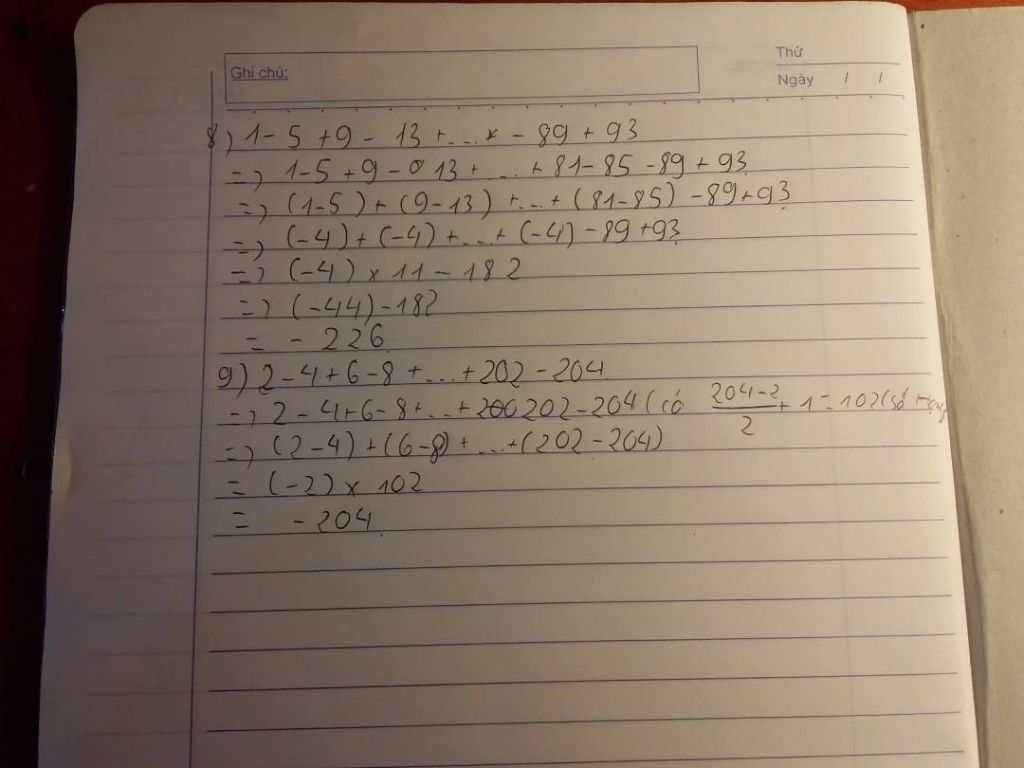 Thứ
Ghi chú:
Ngày / /
8) 1-5+9-13+...-89+93
=> 1-5+9-13+...+81-85-89+93
=> (1-5)+(9-13)+...+(81-85)-89+93
=> (-4)+(-4)+...+(-4)-89+93
=> (-4)×11-182
=> (-44)-182
= -226
9) 2-4+6-8+...+202-204
=> 2-4+6-8+...+202-204 (có (204-2)/2 + 1 = 102 (số
=> (2-4)+(6-8)+...+(202-204)
= (-2)×102
= -204